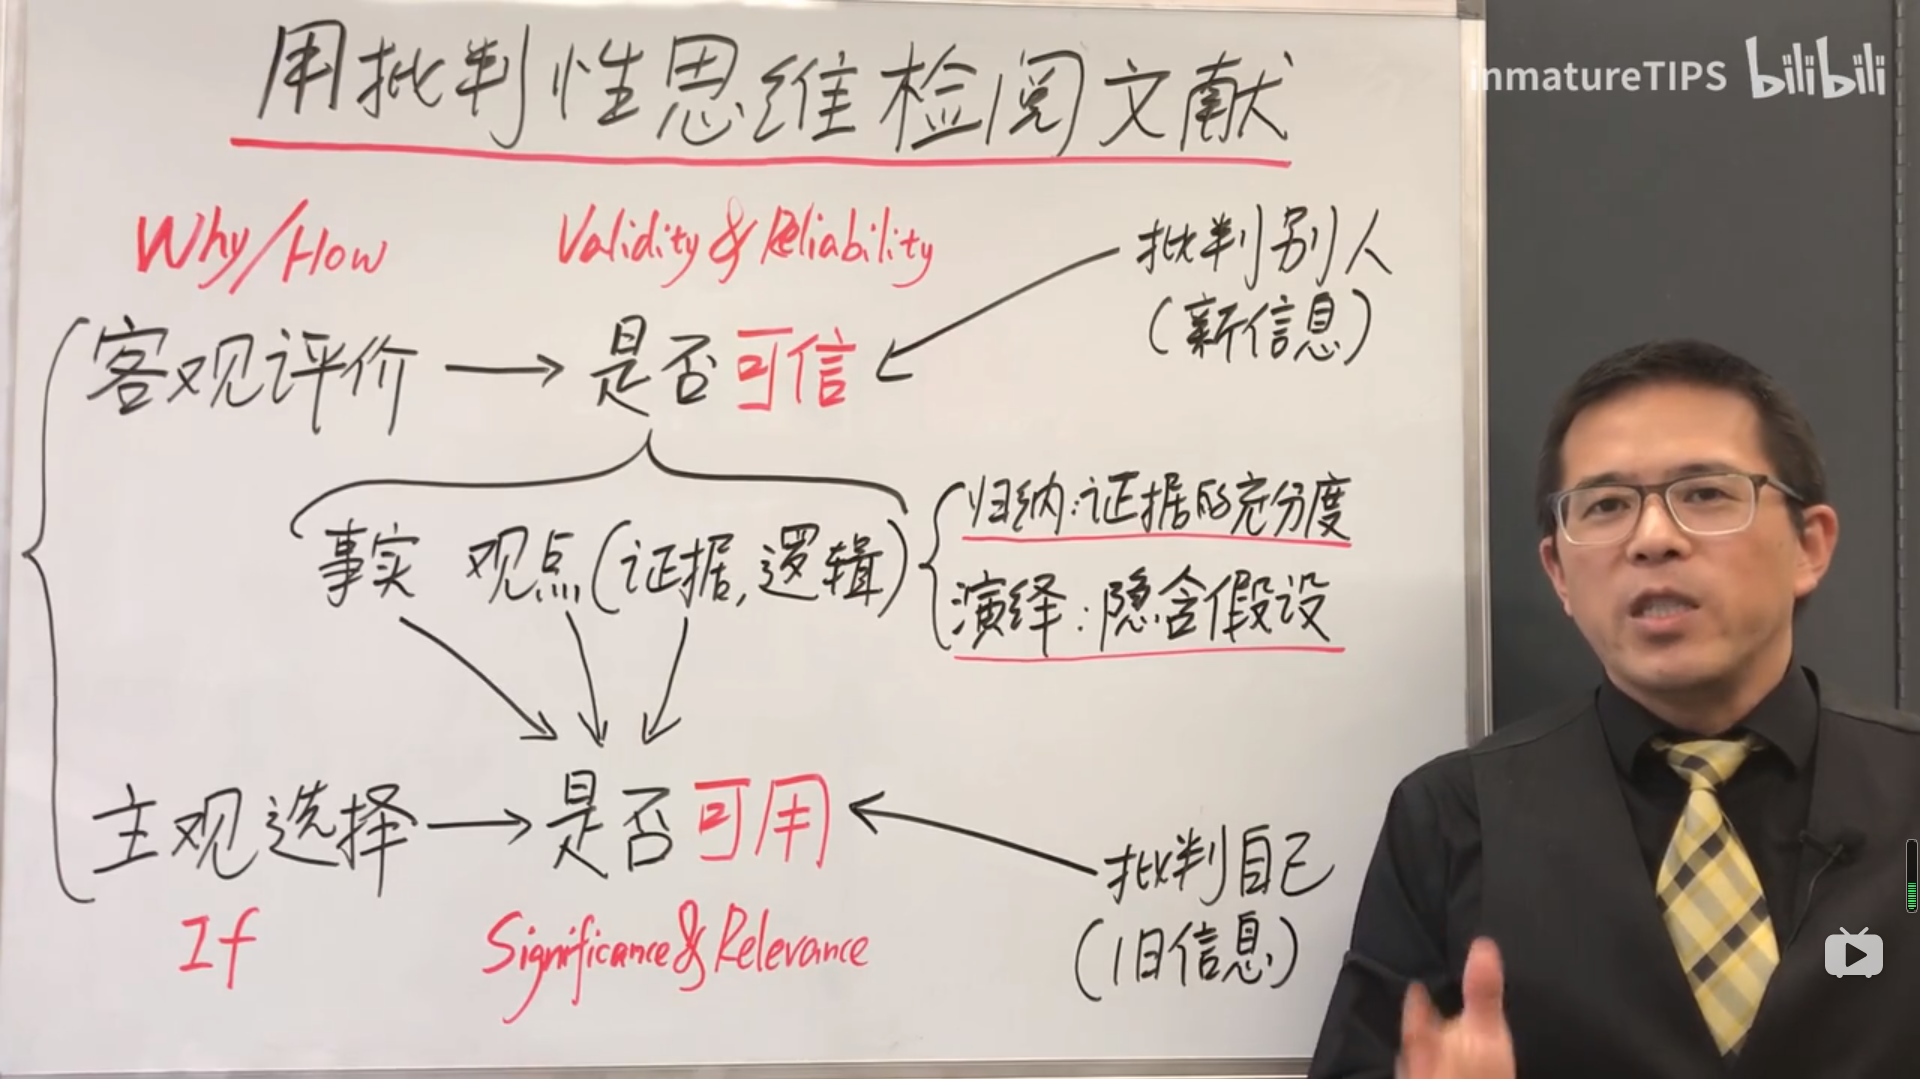 用批判性思维检阅文献
inmatureTIPS bilibili
Why/How
Validity & Reliability
批判别人
(新信息)
客观评价 → 是否可信
事实 观点(证据,逻辑)
归纳:证据的充分度
演绎:隐含假设
主观选择 → 是否可用
批判自己
(旧信息)
If
Significance & Relevance